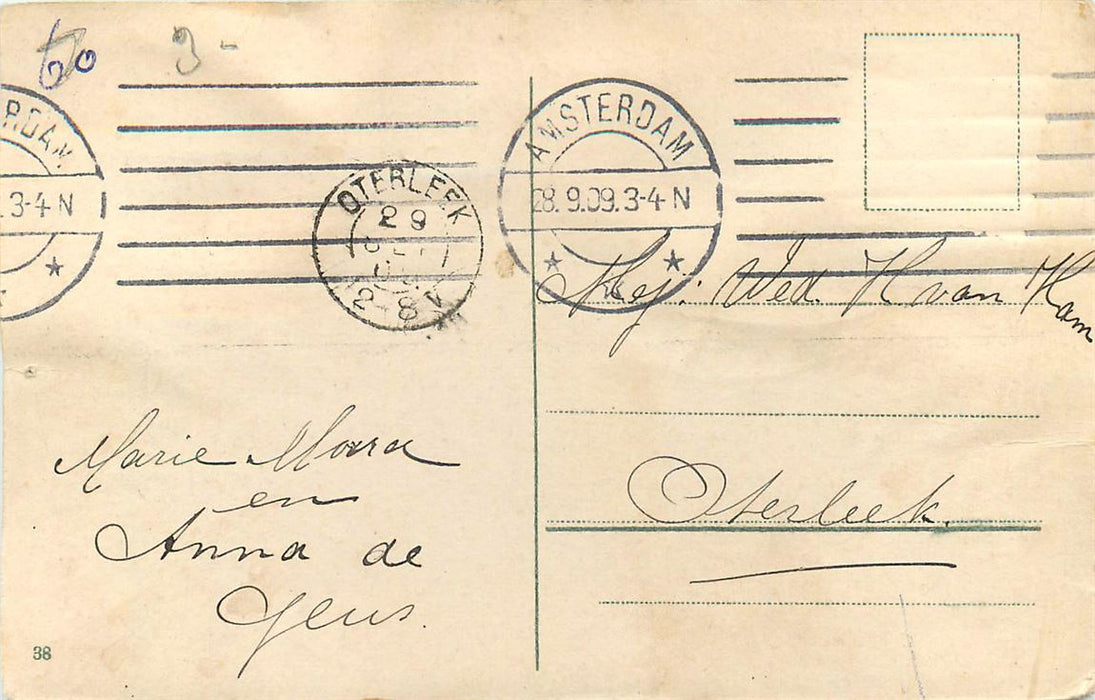 60 3-
RDAM
3-4 N
OTERLEEK
29
SEP
2-8 V
AMSTERDAM
28. 9.09. 3-4 N
Mej: Wed. H van Ham
Oterleek.
Marie Morra
en
Anna de
Geus.
38